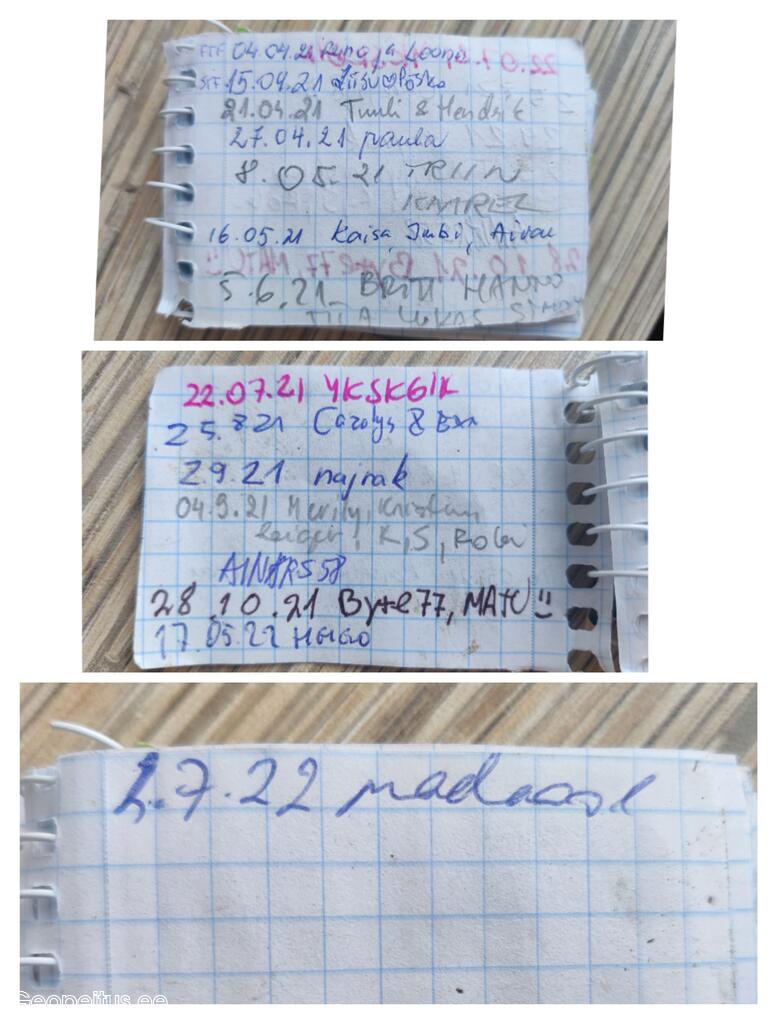 FTF 04.04.21 Runo ja Loona
STF 15.04.21 Liisu♡Posko
21.04.21 Tuuli & Hendrik
27.04.21 paula
8.05.21 TRIIN
KAAREL
16.05.21 Kaisa, Imbi, Aivar
5.6.21 BRITT HANNO
TIIA LUKAS SIMON
22.07.21 YKSK6IK
25.8.21 Carolys &
2.9.21 najnak
04.9.21 Merily, Kristjan,
K, S, Robi
AINARS58
28.10.21 Byte77, MATU
17.05.22
2.7.22
Geopeitus.ee